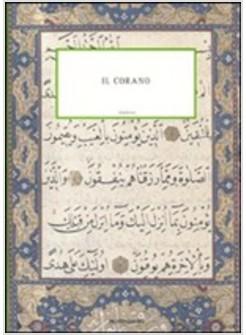 IL CORANO
لِلْمُتَّقِينَ الَّذِينَ يُؤْمِنُونَ بِالْغَيْبِ وَيُقِيمُونَ
الصَّلٰوةَ وَمِمَّا رَزَقْنَاهُمْ يُنْفِقُونَ وَالَّذِينَ
يُؤْمِنُونَ بِمَا أُنْزِلَ إِلَيْكَ وَمَا أُنْزِلَ مِنْ قَبْلِكَ
وَبِالْآخِرَةِ هُمْ يُوقِنُونَ أُولٰئِكَ عَلٰى هُدًى